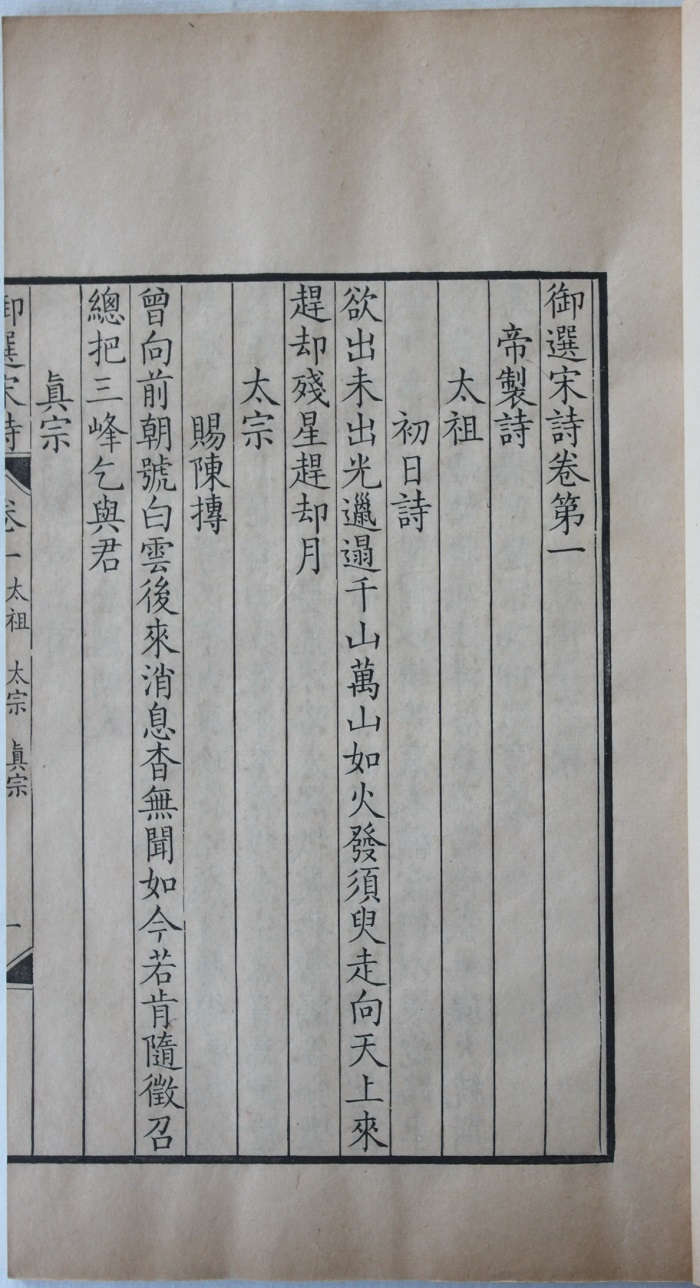 御選宋詩卷第一
帝製詩
太祖
初日詩
欲出未出光邋遢千山萬山如火發須臾走向天上來
趕却殘星趕却月
太宗
賜陳摶
曾向前朝號白雲後來消息杳無聞如今若肯隨徵召
總把三峰乞與君
眞宗
御選宋詩 卷一 太祖 太宗 眞宗 一